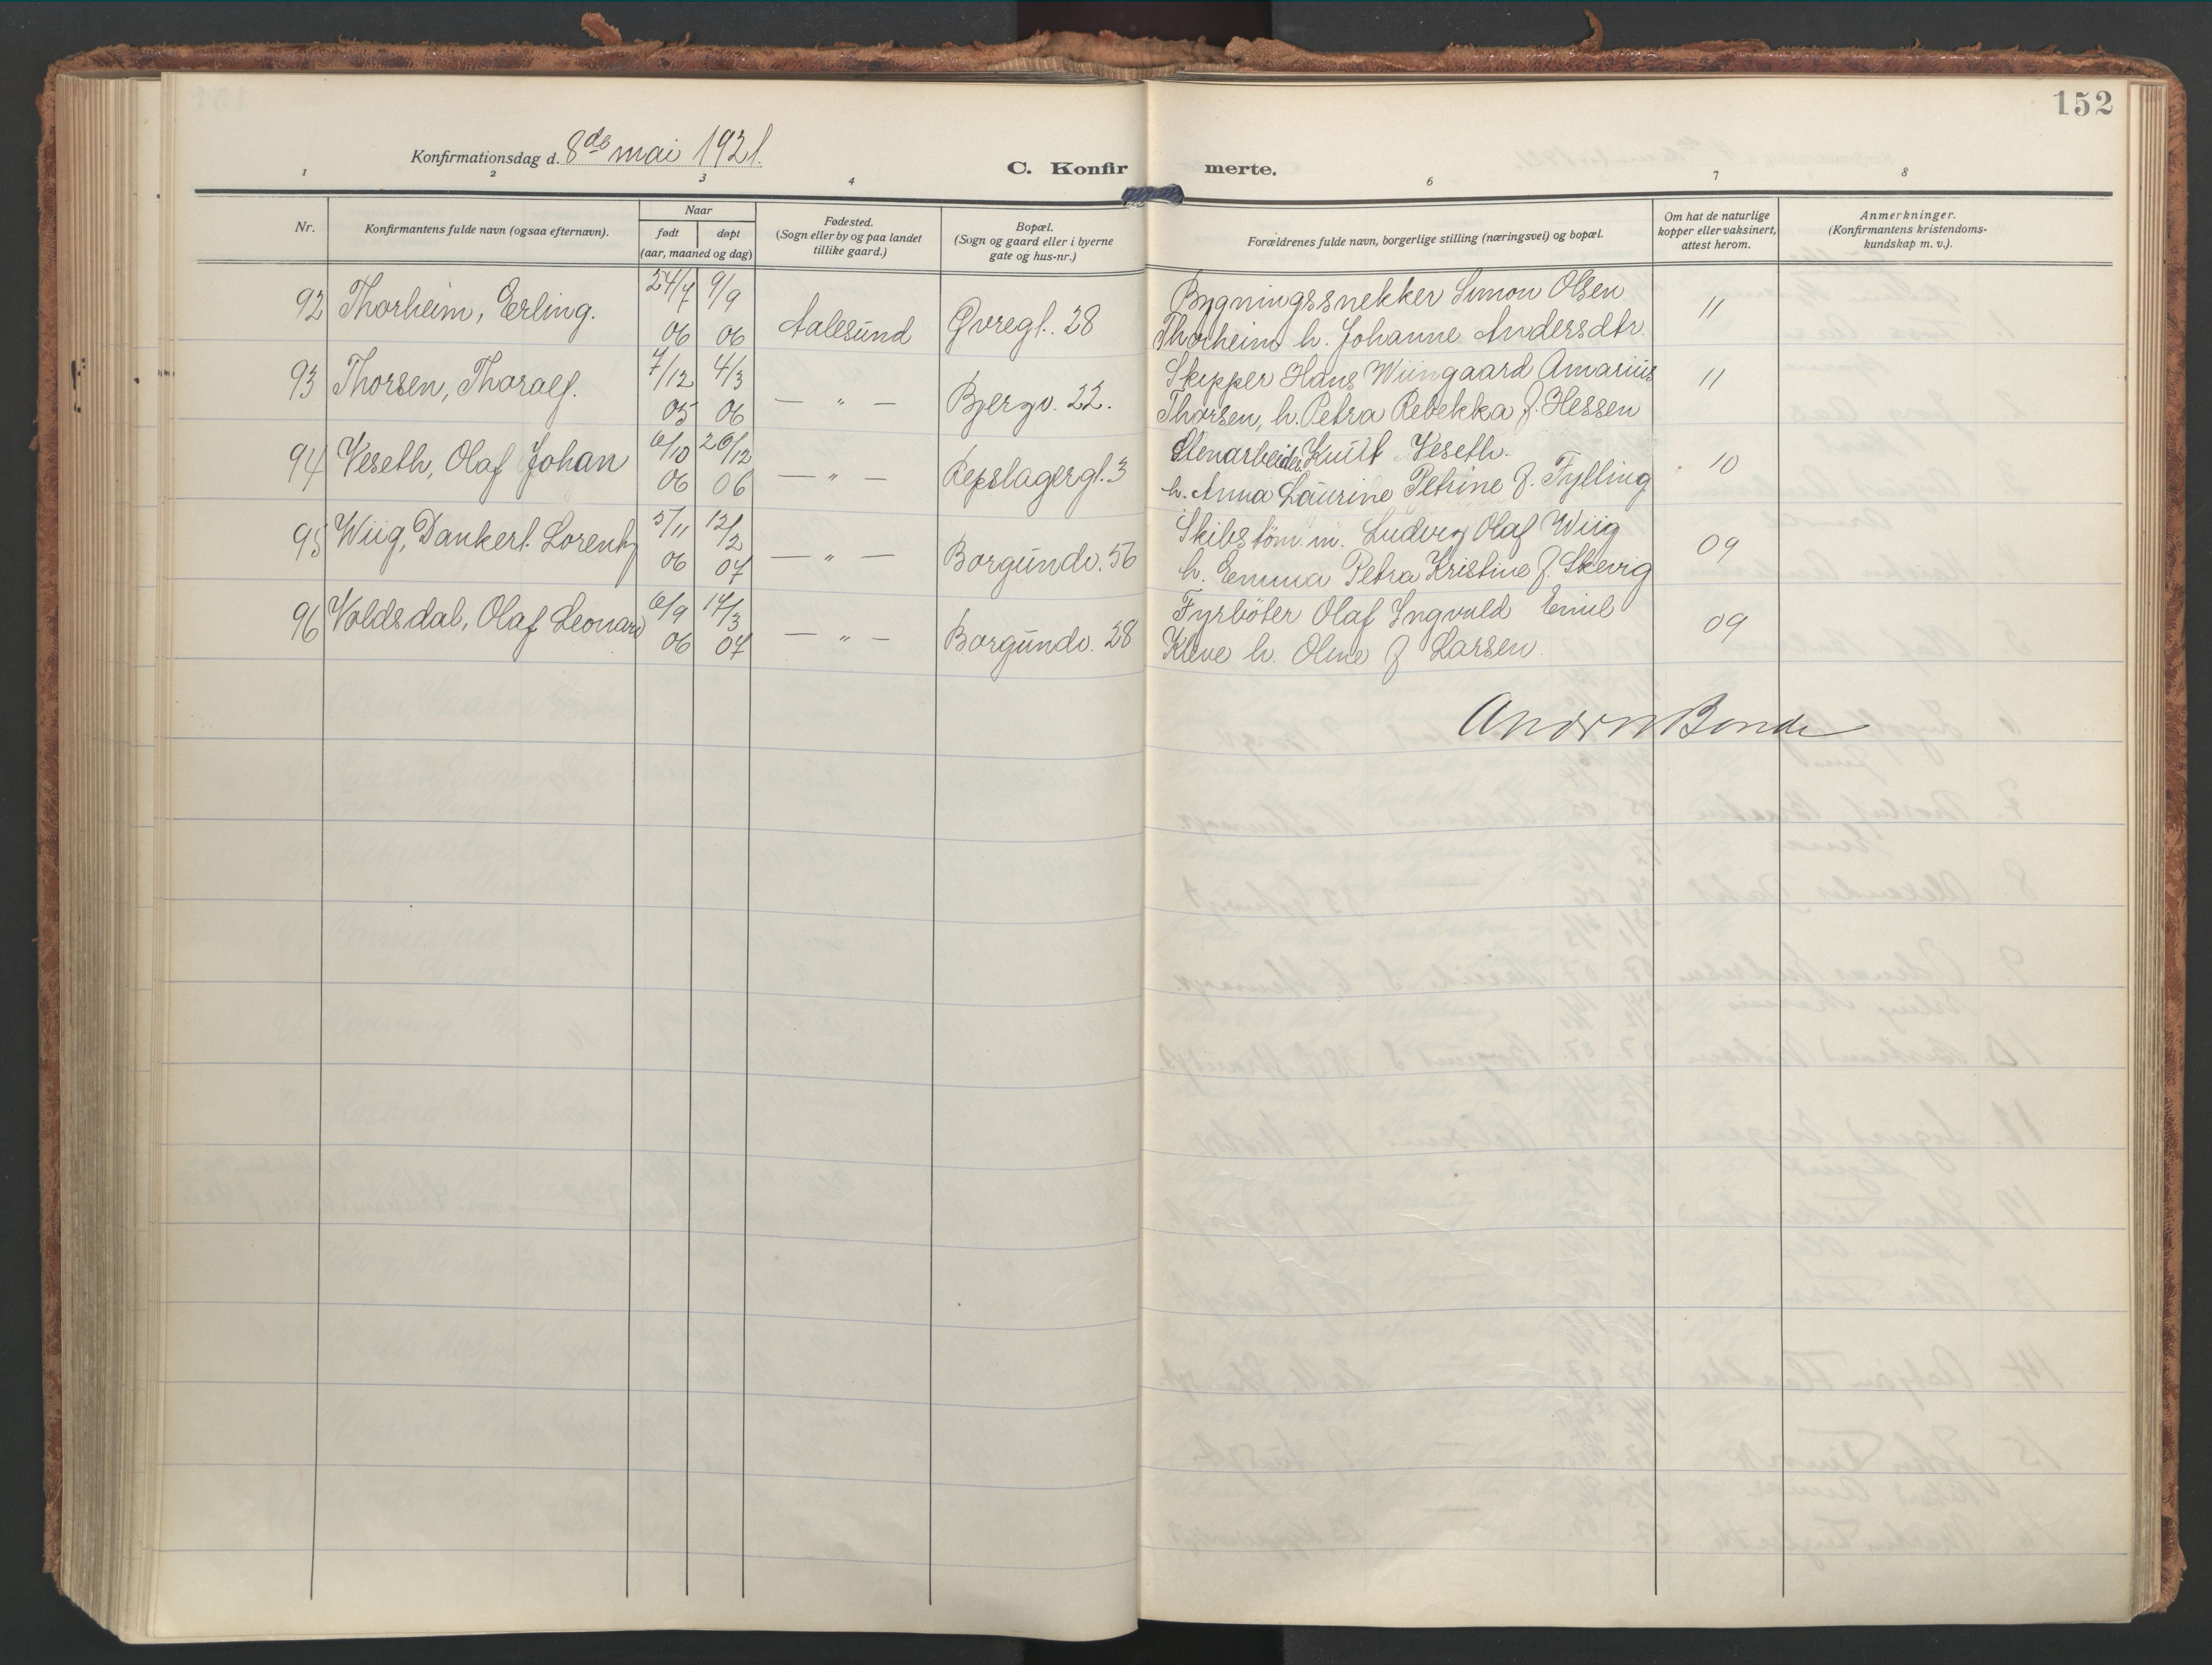 152
Konfirmationsdag d. 8de mai 1921.
C. Konfirmerte.
1 2 3 4 6 7 8
Nr.
Konfirmantens fulde navn (ogsaa efternavn).
Naar
født
døpt
(aar, maaned og dag)
Fødested.
(Sogn eller by og paa landet
tillike gaard.)
Bopæl.
(Sogn og gaard eller i byerne
gate og hus-nr.)
Forældrenes fulde navn, borgerlige stilling (næringsvei) og bopæl.
Om hat de naturlige
kopper eller vaksinert,
attest herom.
Anmerkninger.
(Konfirmantens kristendoms-
kundskap m. v.).
92 Thorheim, Erling. 24/7 06 9/9 06 Aalesund Øvregt. 28 Bygningssnekker Simon Olsen 11
Thorheim h. Johanne Andersdtr.
93 Thorsen, Thoralf. 7/12 05 4/3 06 — " — Bjergv. 22. Skipper Hans Wiingaard Amarius 11
Thorsen, h. Petra Rebekka f. Hessen
94 Veseth, Olaf Johan 6/10 06 26/12 06 — " — Repslagergt. 3 Stenarbeider Knut Veseth. 10
h. Anna Laurine Petrine f. Fylling
95 Wiig, Dankert Lorentz 5/11 06 12/2 07 — " — Borgundv. 56 Skibstøm.m. Ludvig Olaf Wiig 09
h. Emma Petra Kristine f. Skevig
96 Voldsdal, Olaf Leonard 6/9 06 17/3 07 — " — Borgundv. 28 Fyrbøter Olaf Ingvald Emil 09
Kleve h. Oline f. Larsen.